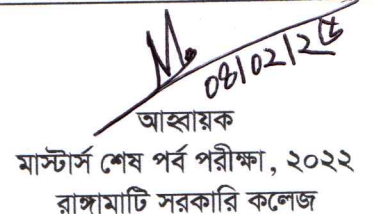 08/02/25
আহ্বায়ক
মাস্টার্স শেষ পর্ব পরীক্ষা, ২০২২
রাঙ্গামাটি সরকারি কলেজ